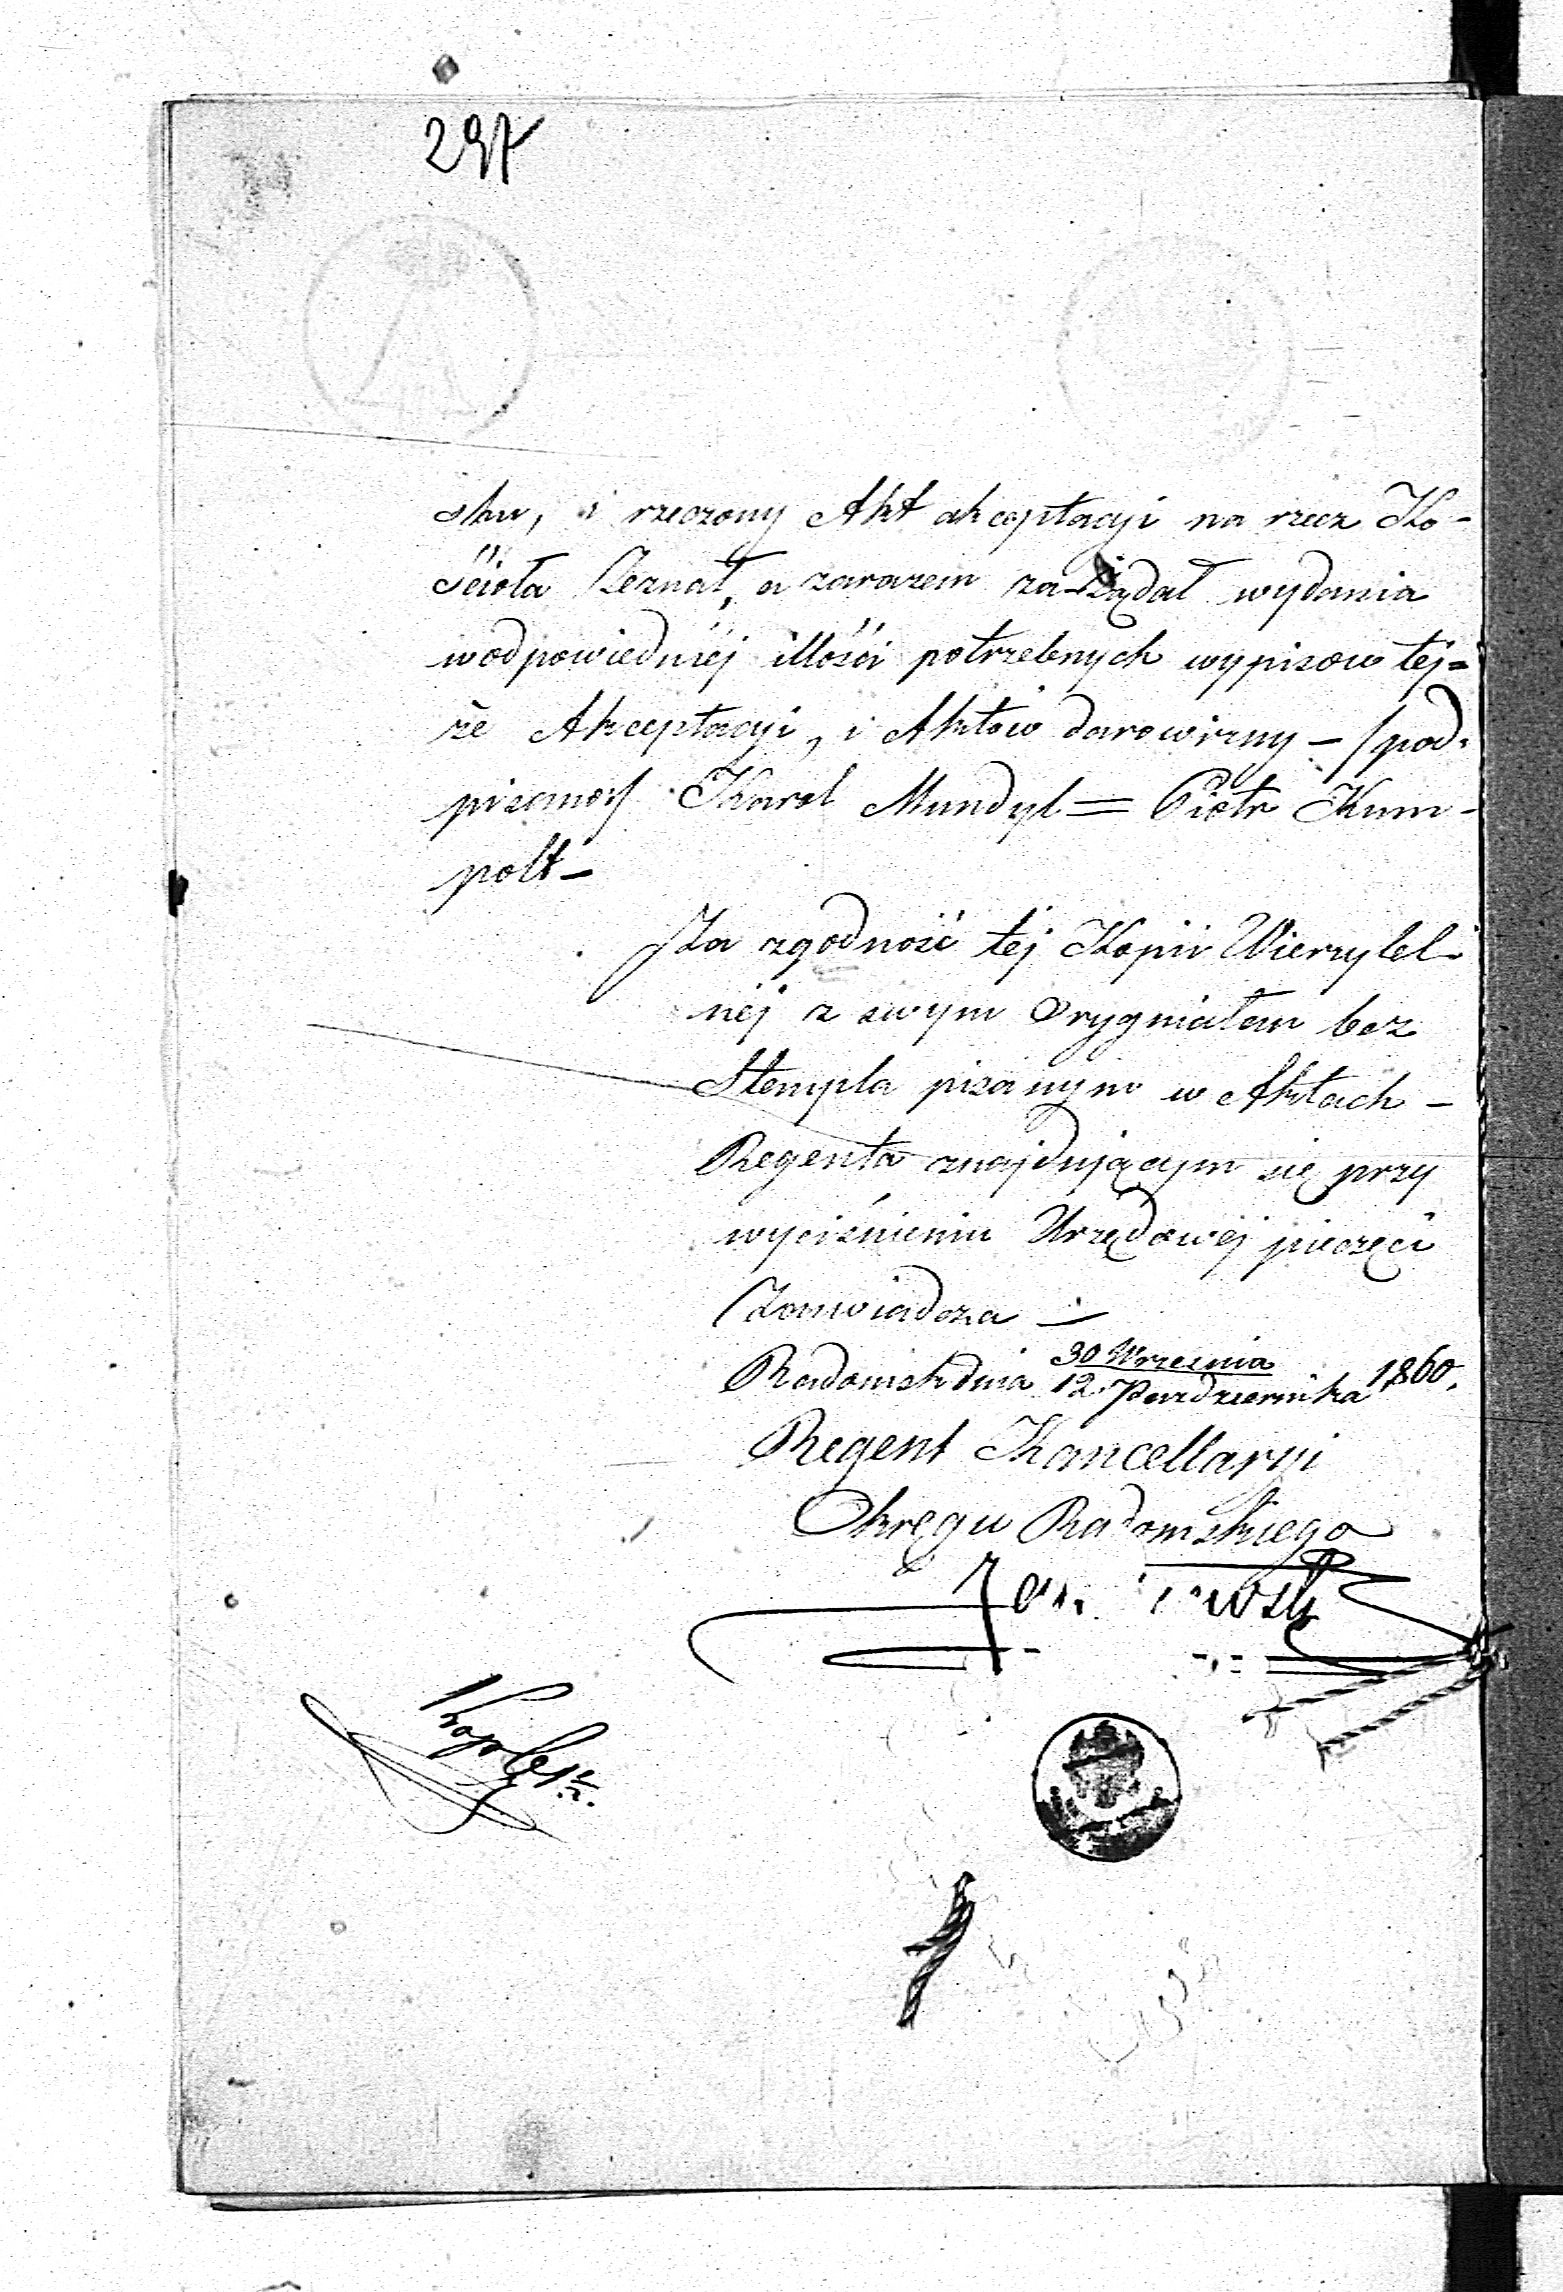 297
sku, i rzeczony Akt akceptacyi na rzecz Ko-
ścioła Zeznał, a zarazem za-żądał wydania
w odpowiedniéj illości potrzebnych wypisow tej=
że Akceptacyi, i Aktów darowizny – /pod-
pisano/ Karol Mundyl = Piotr Kum-
polt –
Za zgodność téj Kopii Wierzytel-
néj z swym Orygniałem bez
Stempla pisanym w Aktach –
Regenta znajdującym się przy
wyciśnieniu Urzędowéj pieczęci
Zaswiadcza –
Radomsk dnia 30 Wrzesnia
12 Pazdziernika 1860.
Regent Kancellaryi
Okręgu Radomskiego